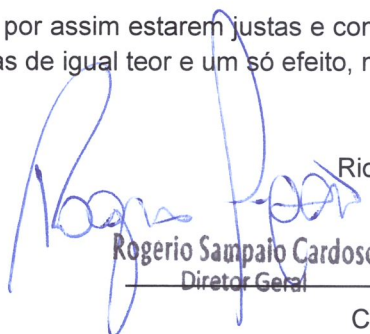 por assim estarem justas e con
as de igual teor e um só efeito, n
Rio
Rogerio Sampaio Cardoso
Diretor Geral
C